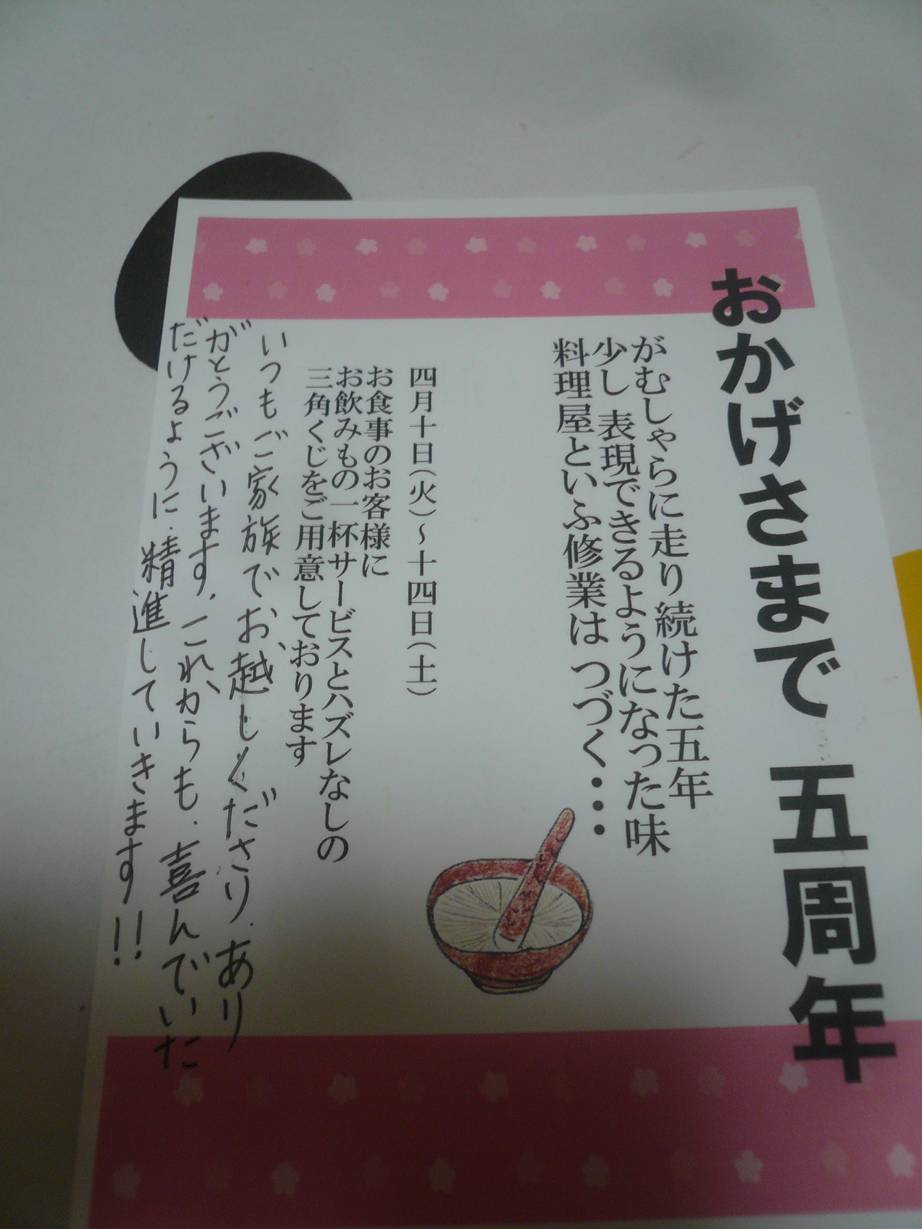 おかげさまで 五周年
がむしゃらに走り続けた五年
少し 表現できるようになった味
料理屋といふ修業は つづく・・・
四月十日(火)～十四日(土)
お食事のお客様に
お飲みもの一杯サービスとハズレなしの
三角くじをご用意しております
いつもご家族でお越しくださり、あり
がとうございます。これからも、喜んでいた
だけるように、精進していきます!!